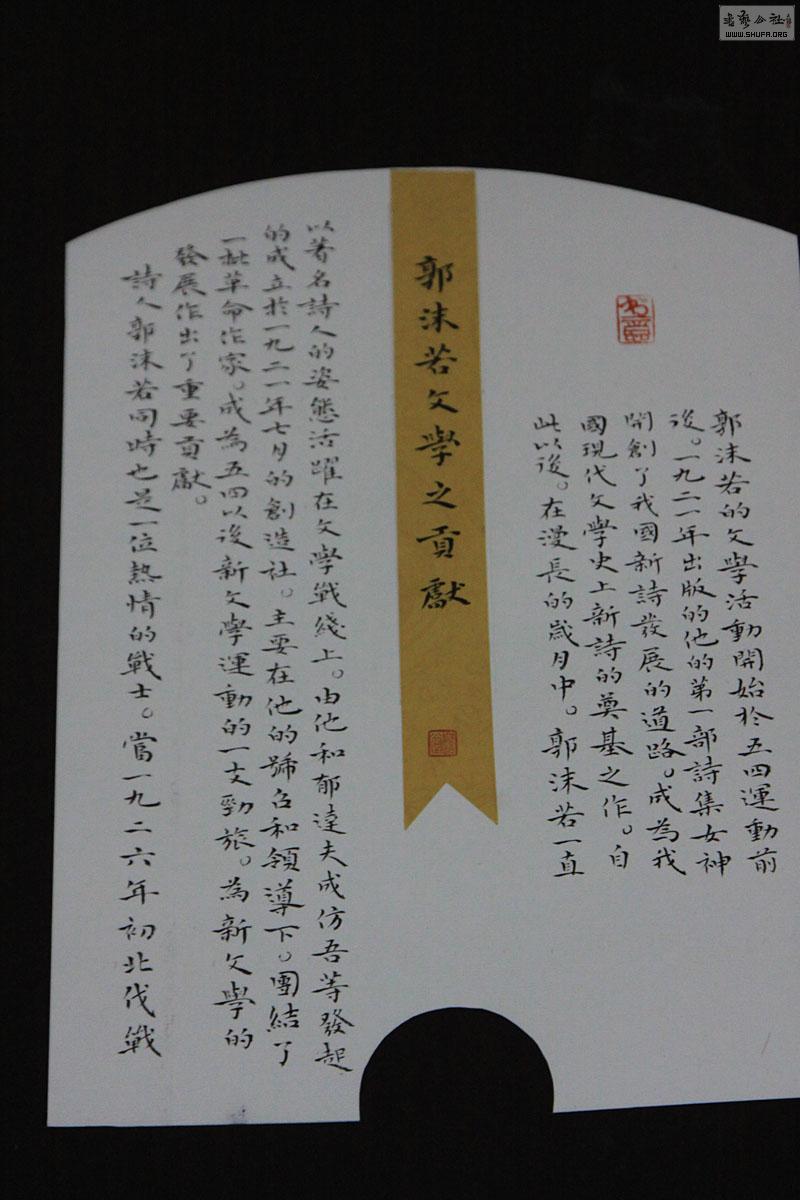 郭沫若的文學活動開始於五四運動前
後。一九二一年出版的他的第一部詩集女神
開創了我國新詩發展的道路。成為我
國現代文學史上新詩的奠基之作。自
此以後。在漫長的歲月中。郭沫若一直
郭沫若文學之貢獻
以著名詩人的姿態活躍在文學戰綫上。由他和郁達夫成仿吾等發起
的成立於一九二一年七月的創造社。主要在他的號召和領導下。團結了
一批革命作家。成為五四以後新文學運動的一支勁旅。為新文學的
發展作出了重要貢獻。
詩人郭沫若同時也是一位熱情的戰士。當一九二六年初北伐戰
書藝公社
WWW.SHUFA.ORG